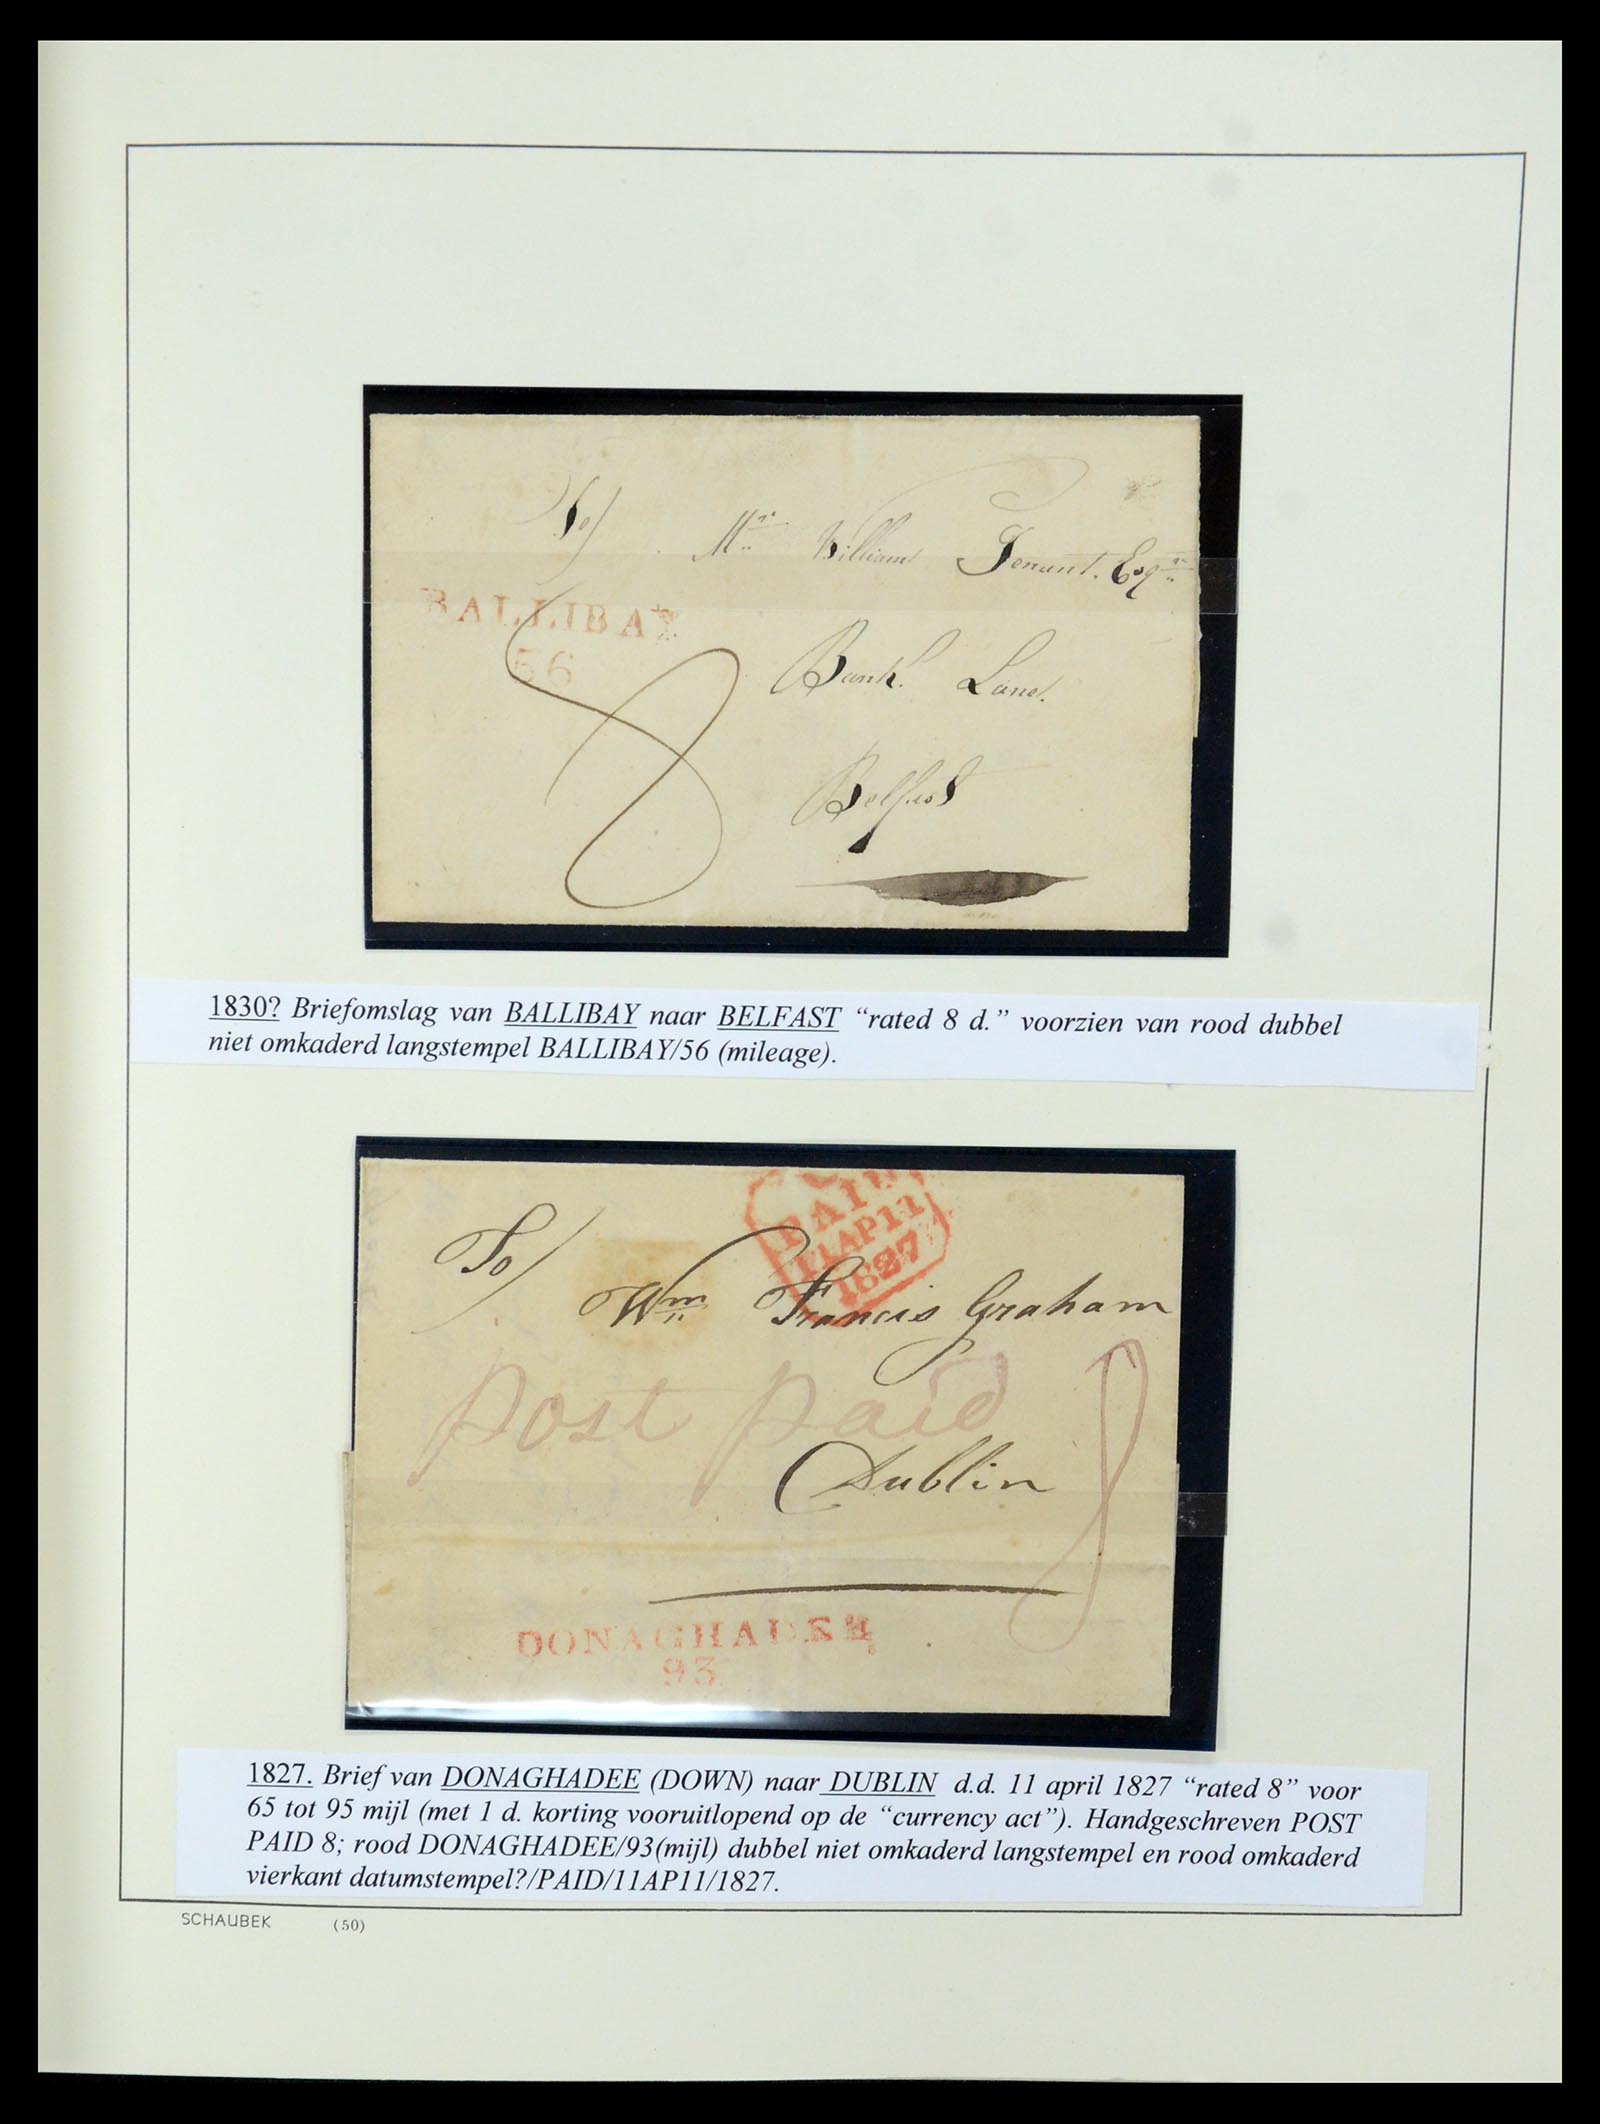 To/
Mr. William Tenant. Esqr.
BALLIBAY
56
8
Bank Lane.
Belfast
1830? Briefomslag van BALLIBAY naar BELFAST “rated 8 d.” voorzien van rood dubbel
niet omkaderd langstempel BALLIBAY/56 (mileage).
PAID
11AP11
1827
To/
Wm Francis Graham
Post Paid 8
Dublin
DONAGHADEE
93
1827. Brief van DONAGHADEE (DOWN) naar DUBLIN d.d. 11 april 1827 “rated 8” voor
65 tot 95 mijl (met 1 d. korting vooruitlopend op de “currency act”). Handgeschreven POST
PAID 8; rood DONAGHADEE/93(mijl) dubbel niet omkaderd langstempel en rood omkaderd
vierkant datumstempel?/PAID/11AP11/1827.
SCHAUBEK (50)